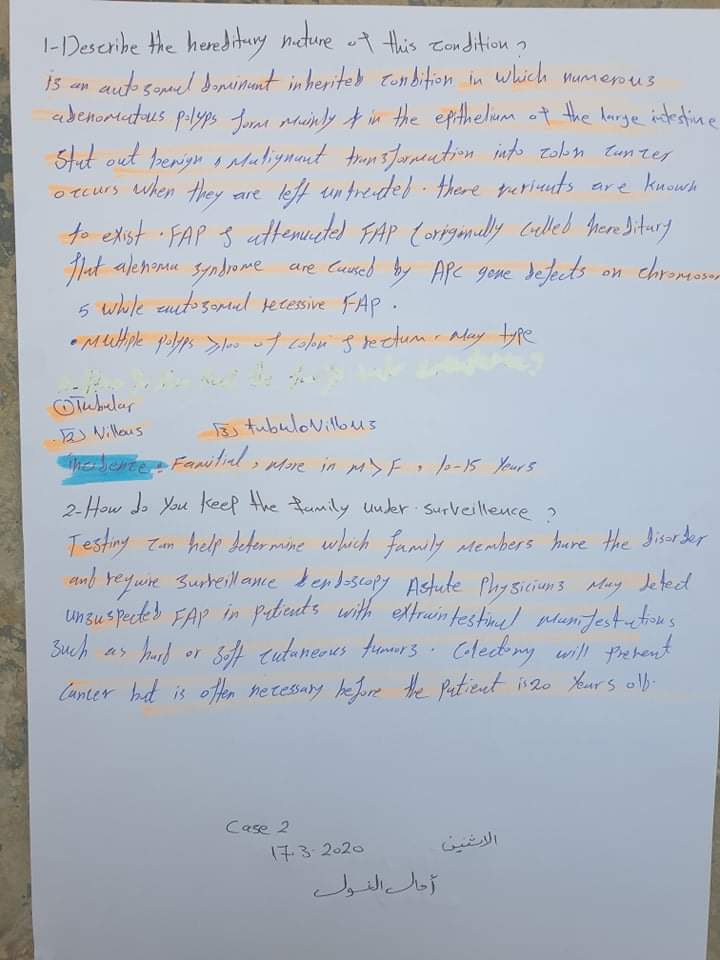 1-Describe the hereditary nature of this condition?
is an autosomal dominant inherited condition in which numerous
adenomatous polyps form mainly in the epithelium of the large intestine
Stat out benign, Malignant transformation into colon cancer
occurs when they are left untreated. there variants are known
to exist. FAP & attenuated FAP (originally called hereditary
flat adenoma syndrome are caused by APC gene defects on chromosom
5 while autosomal recessive FAP.
• Multiple polyps ≥100 of colon & rectum. May type
① Tubular
[2] Villous [3] tubuloVillous
incidence: Familial, More in M>F, 10-15 Years
2-How do you keep the family under surveillence?
Testing can help determine which family members have the disorder
and require Surveillance & endoscopy Astute Physicians May detect
unsuspected FAP in patients with extraintestinal Manifestations
Such as hard or soft cutaneous tumors. Colectomy will prevent
Cancer but is often necessary before the patient is 20 Years old.
Case 2
17.3.2020 الاثنين